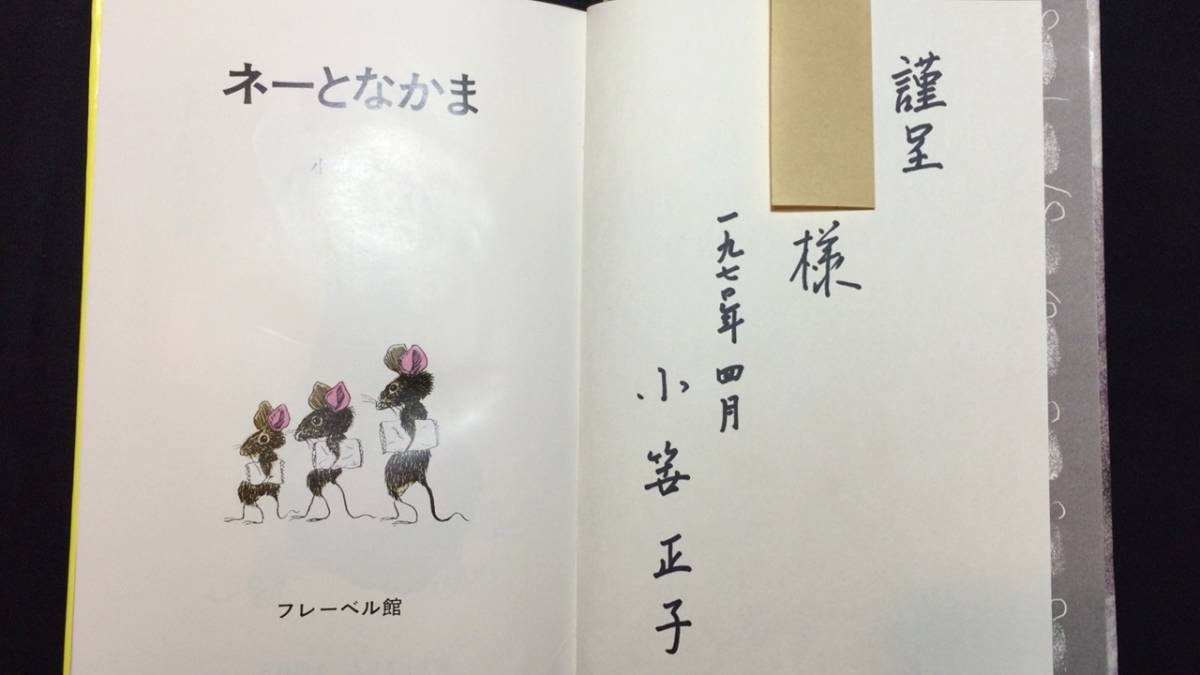 ネーとなかま
小
フレーベル館
謹呈
様
一九七〇年 四月
小 笹 正 子